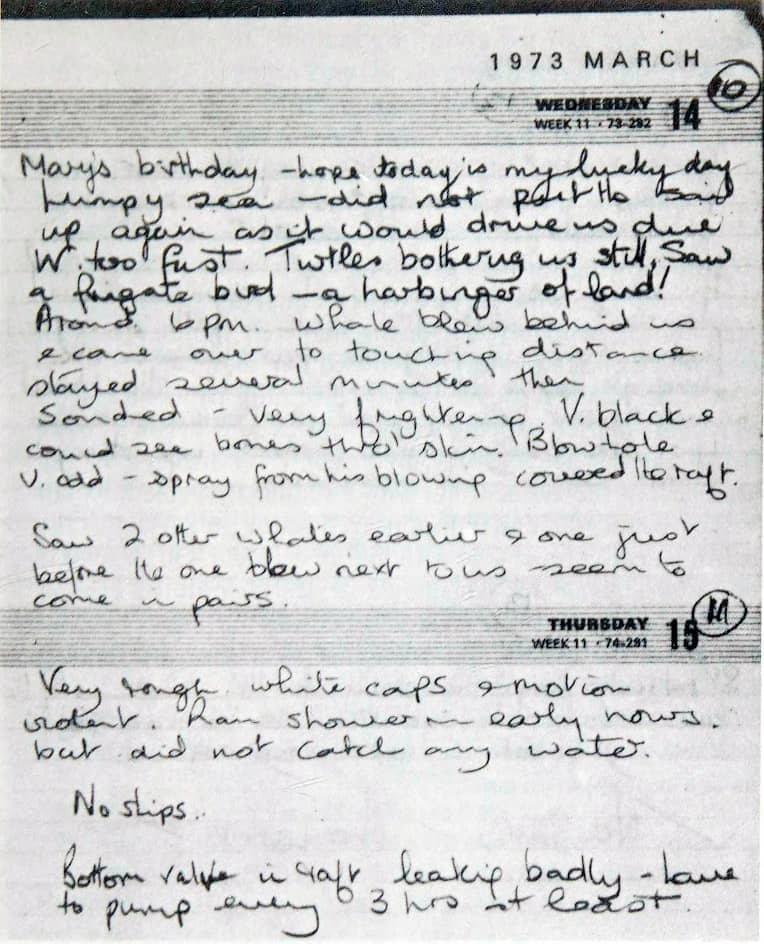 1973 MARCH
10
WEDNESDAY 14
WEEK 11 · 73-292
Mary's birthday - hope today is my lucky day
Lumpy sea - did not put the sail
up again as it would drive us due
W. too fast. Turtles bothering us still. Saw
a frigate bird - a harbinger of land!
Around 6 pm. whale blew behind us
& came over to touching distance
stayed several minutes, then
Sounded - very frightening. V. black &
could see bones thro' skin. Blowhole
v. odd - spray from his blowing covered the raft.
Saw 2 other whales earlier & one just
before the one blew next to us seem to
come in pairs.
11
THURSDAY 15
WEEK 11 · 74-291
Very rough, white caps & motion
violent. Rain shower in early hours.
but did not catch any water.
No ships.
Bottom valve in raft leaking badly - have
to pump every 3 hrs at least